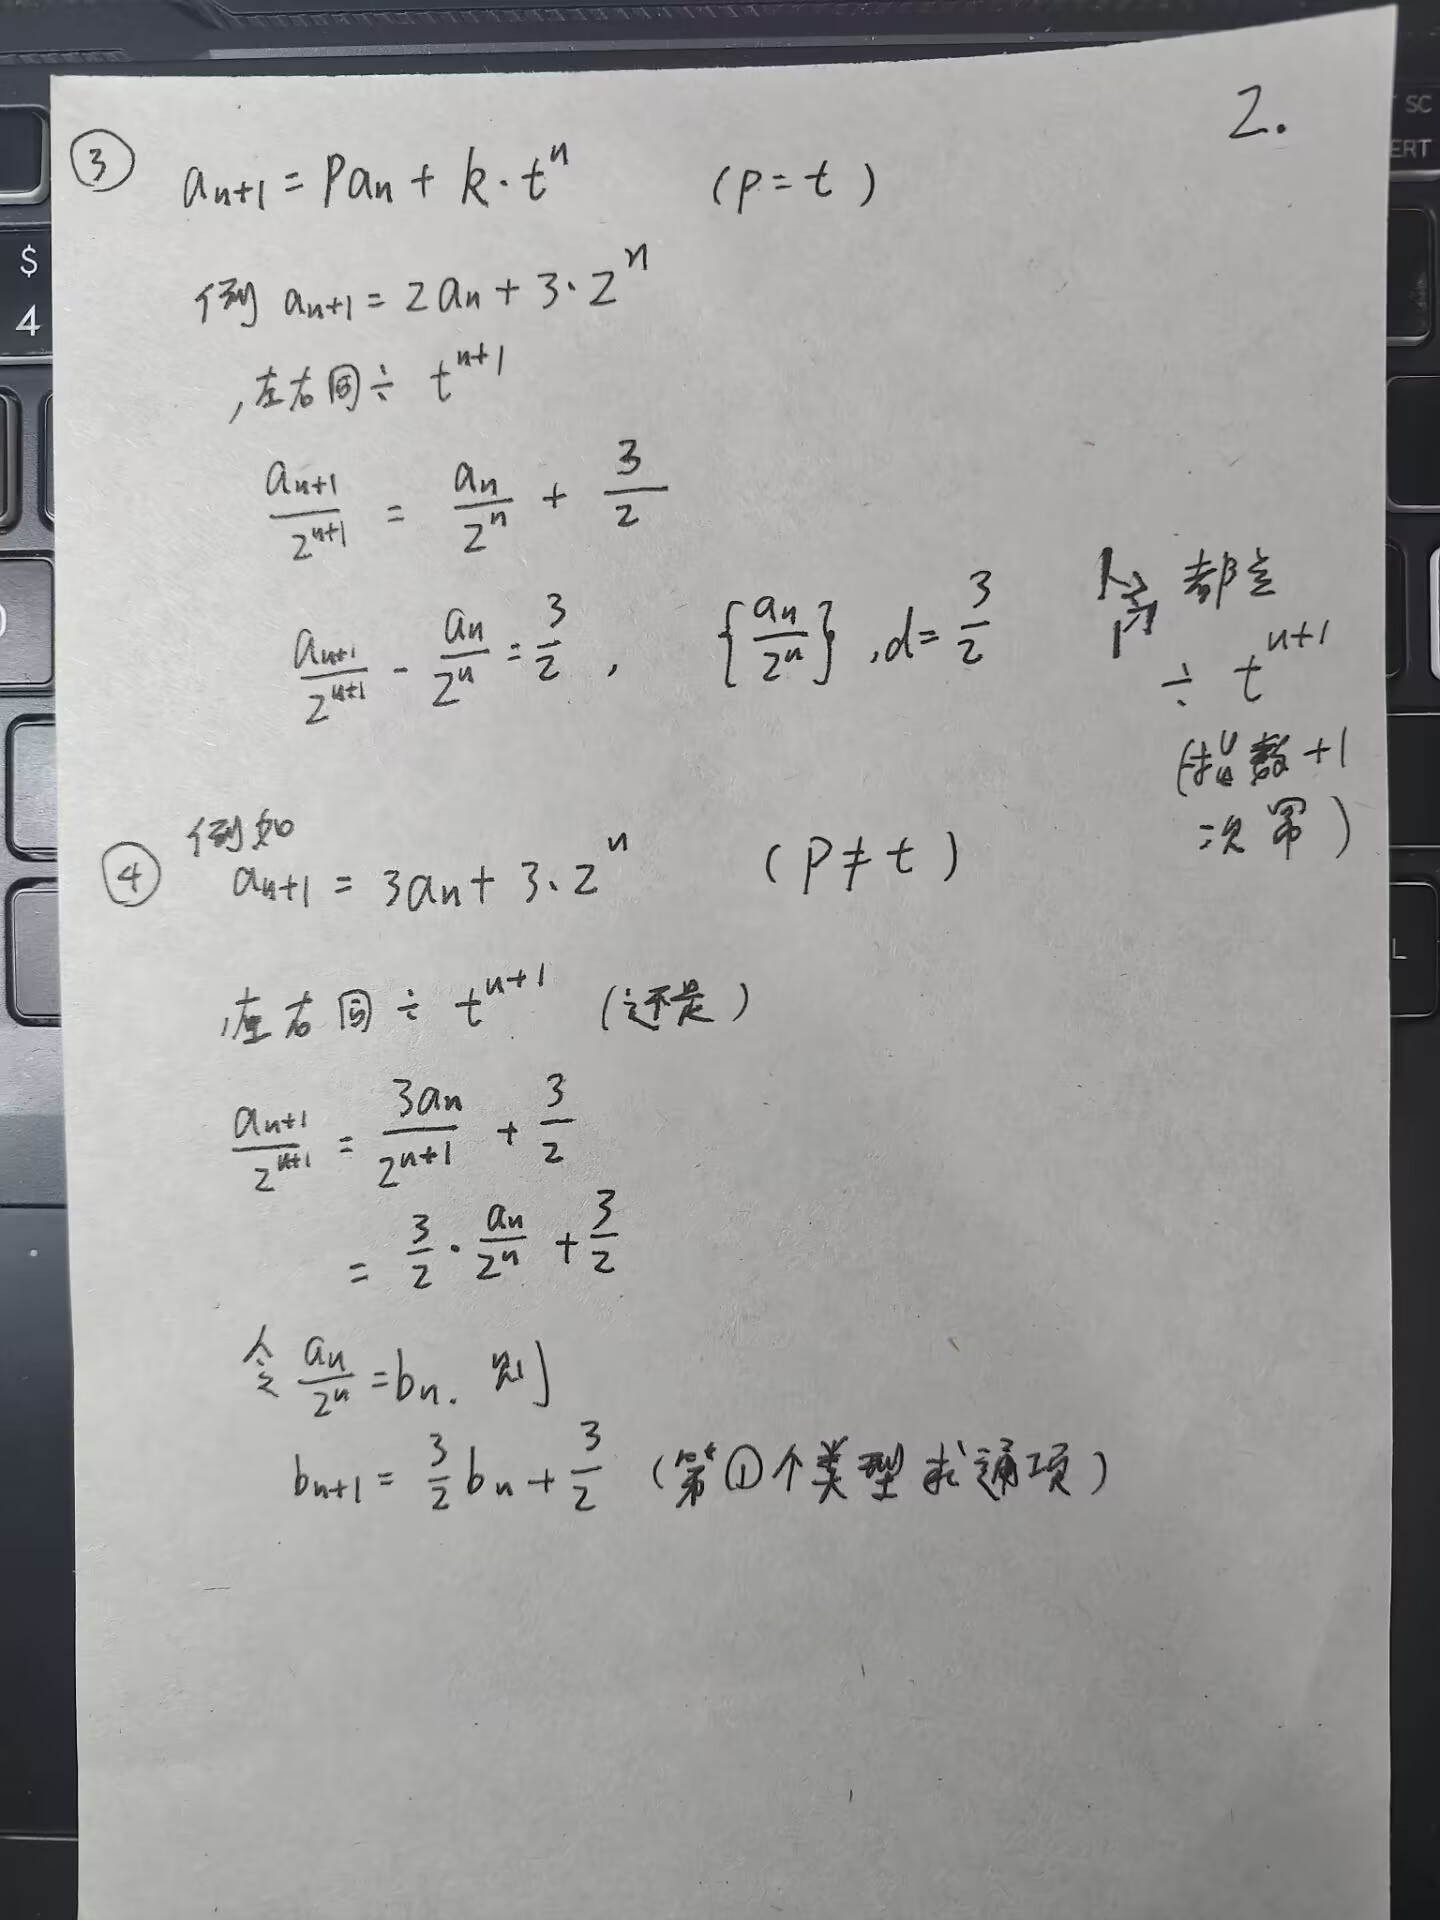 2.
③ aₙ₊₁ = Paₙ + k·tⁿ (P = t)
例 aₙ₊₁ = 2aₙ + 3·2ⁿ
,左右同÷ tⁿ⁺¹
aₙ₊₁/2ⁿ⁺¹ = aₙ/2ⁿ + 3/2
aₙ₊₁/2ⁿ⁺¹ - aₙ/2ⁿ = 3/2, {aₙ/2ⁿ}, d = 3/2
都是
÷ tⁿ⁺¹
(指数+1
次幂)
例如
④ aₙ₊₁ = 3aₙ + 3·2ⁿ (P ≠ t)
,左右同÷ tⁿ⁺¹ (还是)
aₙ₊₁/2ⁿ⁺¹ = 3aₙ/2ⁿ⁺¹ + 3/2
= 3/2 · aₙ/2ⁿ + 3/2
令 aₙ/2ⁿ = bₙ. 则
bₙ₊₁ = 3/2 bₙ + 3/2 (第①个类型求通项)
$
4
SC
ERT
L